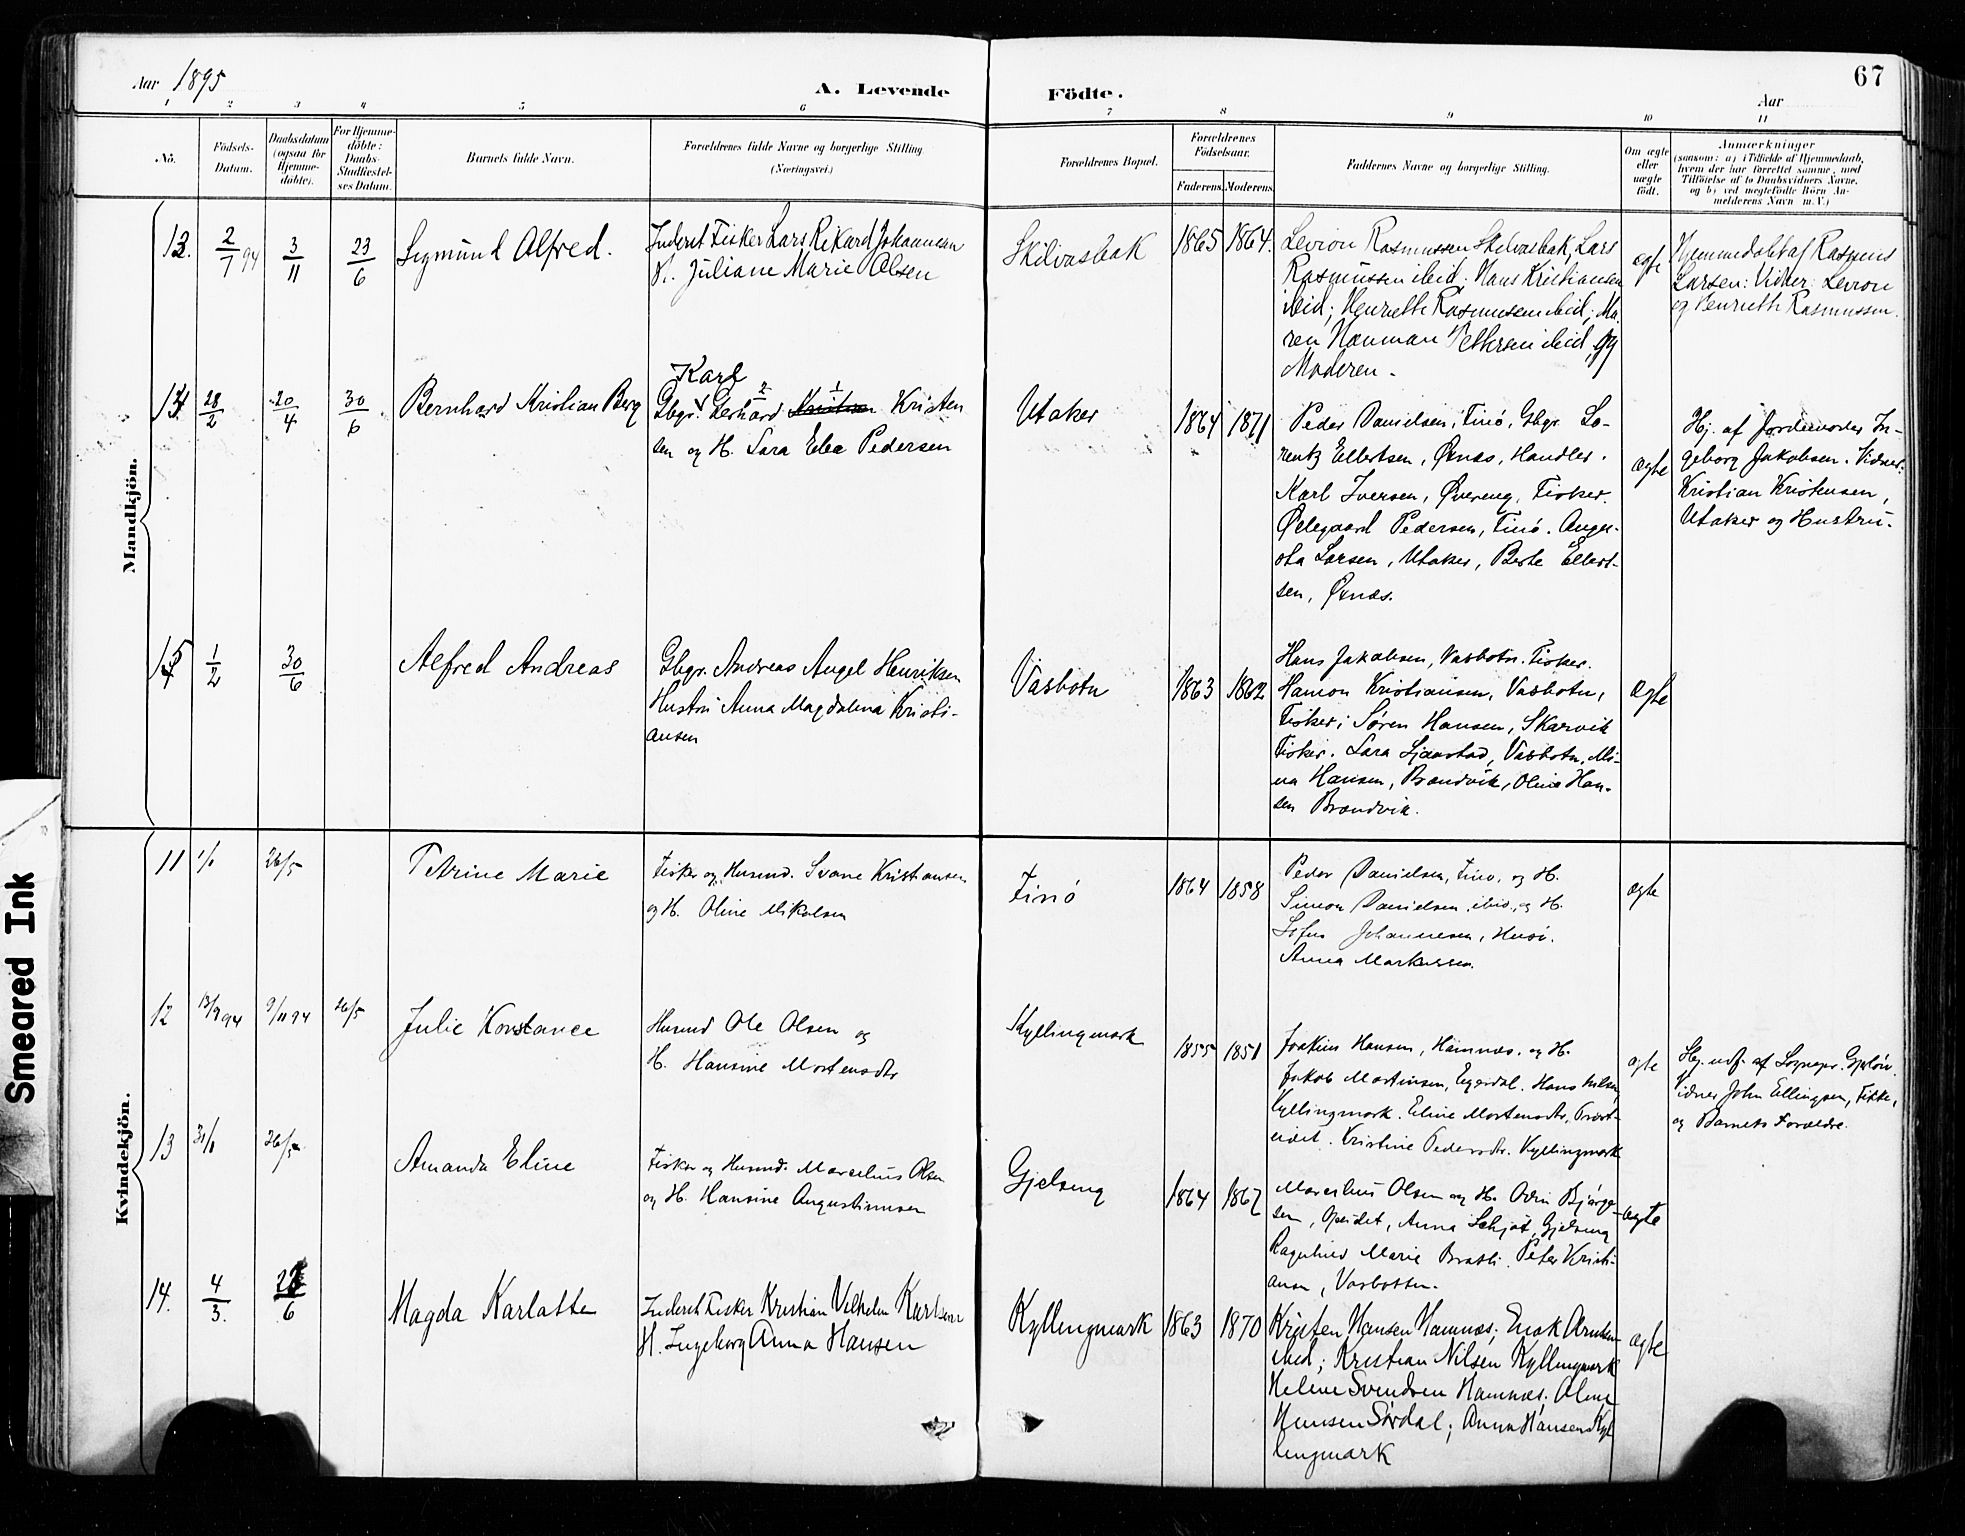 67
Aar 1895
A. Levende
Födte.
Aar
1 2 3 4 5 6 7 8 9 10 11
No.
Födsels-
Datum.
Daabsdatum
(ogsaa for
Hjemme-
döbte).
For Hjemme-
döbte:
Daabs-
Stadfæstel-
ses Datum.
Barnets fulde Navn.
Forældrenes fulde Navne og borgerlige Stilling
(Næringsvei.)
Forældrenes Bopæl.
Forældrenes
Födselsaar.
Faderens. Moderens.
Faddernes Navne og borgerlige Stilling.
Om ægte
eller
uægte
født.
Anmærkninger
(saasom: a) i Tilfælde af Hjemmedaab,
hvem der har forrettet samme, med
Tilföielse af to Daabsvidners Navne,
og b) ved uægtefödte Börn An-
melderens Navn m. V.)
Mandkjön.
13. 2/7 94
3/11
23/6
Sigmund Alfred.
Inderst Fisker Lars Rikard Johannesen
H. Juliane Marie Olsen
Skilvasbak
1865 1864.
Levion Rasmussen Skilvasbak, Lars
Rasmussen ibid; Hans Kristiansen
ibid; Henriette Rasmussen ibid; Ma-
ren Nauman Pettersen ibid og
Moderen.
ægte
Hjemmedøbt af Rasmus
Larsen: Vidner: Levion
og Henriette Rasmussen.
14. 28/2
20/4
30/6
Bernhard Kristian Berg
Karl
Gbgr. Gerhard Kristen
sen og H. Sara Elea Pedersen
Utaker
1864 1871
Peder Danielsen, Finö, Gbgr. Lo-
rentz Ellertsen, Ørnæs, Handler.
Karl Iversen, Øvereng, Fisker.
Ølegaard Pedersen, Finö. Augu-
sta Larsen, Utaker, Berte Ellert-
sen, Ørnæs.
ægte
Hj. af Jordemoder In-
geborg Jakobsen. Vidner:
Kristian Kristensen,
Utaker og Hustru.
15 1/2
30/6
Alfred Andreas
Gbgr. Andreas Angel Henriksen
Hustru Anna Magdalena Kristi-
ansen
Vasbotn
1863 1862
Hans Jakobsen, Vasbotn. Fisker.
Hanson Kristiansen, Vasbotn,
Fisker; Søren Hansen, Skarvik
Fisker. Sara Sjaastad, Vasbotn, Mi-
na Hansen, Brændvik, Oline Han-
sen Brændvik.
ægte
Kvindekjön.
11 1/1
26/5
Petrine Marie
Fisker og Husmd. Svane Kristiansen
og H. Oline Mikalsen
Finö
1864 1858
Peder Danielsen, Finö, og H.
Simon Danielsen, ibid., og H.
Sofus Johannesen, Husö.
Anna Markussen.
ægte
12 13/9 94
9/11 94
26/5
Julie Konstance
Husmd Ole Olsen og
H. Hansine Mortensdtr
Kyllingmark
1855 1851
Joakim Hansen, Hamnæs, og H.
Jakob Martinsen, Egerdal. Hans Nilsen
Kyllingmark. Eline Mortensdtr, Præst-
eidet. Kristine Pedersdtr. Kyllingmark
ægte
Hj. udf. af Sognepr.
Vidner John Ellingsen,
og Barnets Forældre.
13 31/1
26/5
Amanda Eline
Fisker og Husmd. Marselius Olsen
og H. Hansine Augustinusen
Gjelseng
1864 1867
Marselius Olsen og H. Odin Bjørge-
sen, Opeidet, Anna Schjøt, Gjelseng
Ragnhild Marie Bratli. Peter Kristi-
ansen, Vasbotten.
ægte
14. 4/3.
23/6
Magda Karlotte
Inderst Fisker Kristian Vilhelm Karlsen
H. Ingeborg Anna Hansen
Kyllingmark
1863 1870
Kristen Hansen Hamnæs; Enok Arntsen
ibid; Kristian Nilsen Kyllingmark
Heline Svendsen Hamnæs; Oline
Hansen Sørdal; Anna Hansen Kyl
lingmark
ægte
Smeared Ink